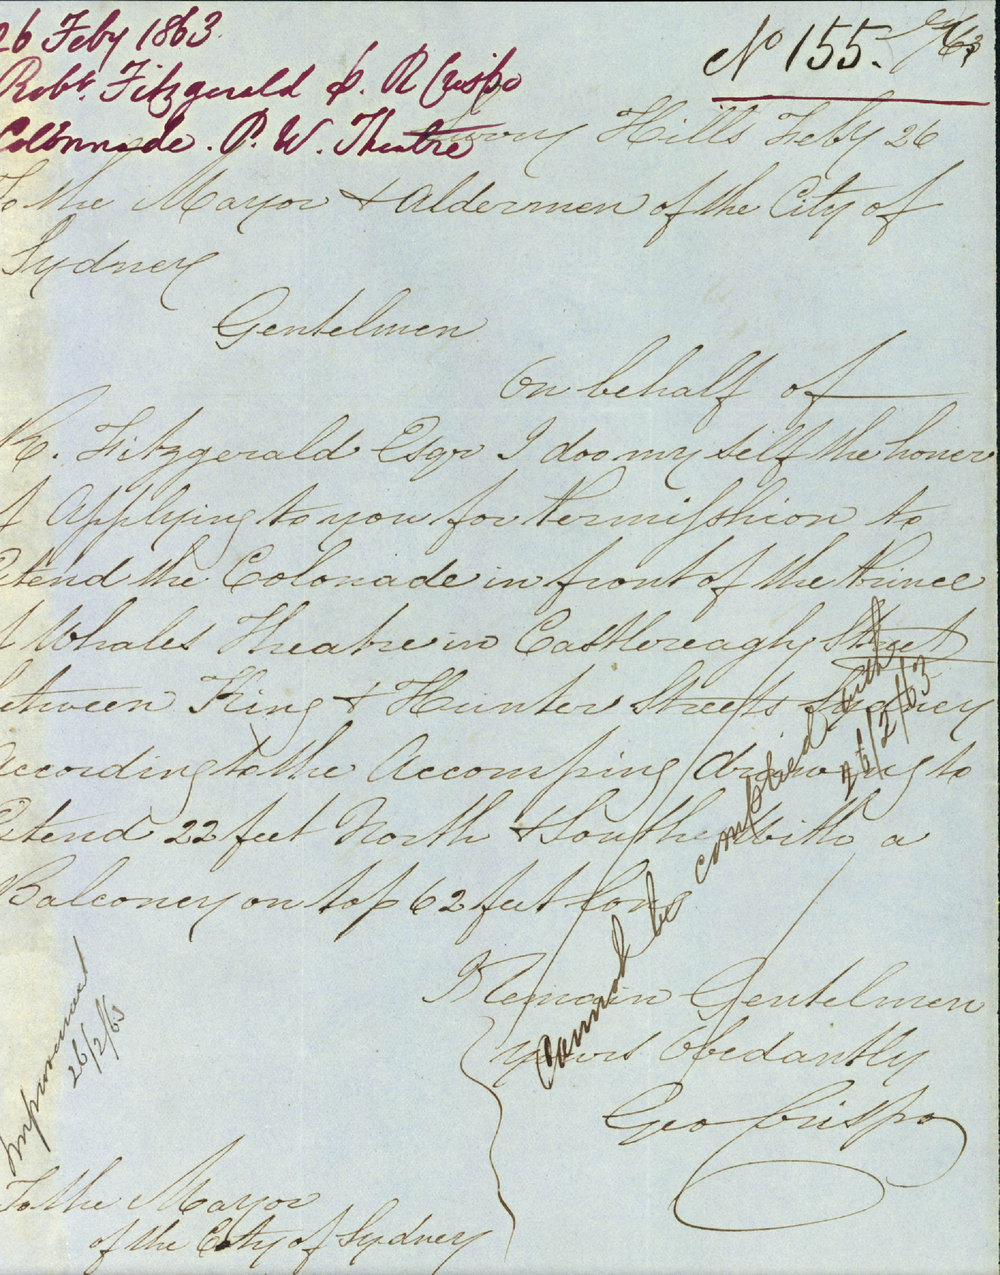 26 Feby 1863
Robt. Fitzgerald p. R Crispo
Colonnade. P. W. Theatre
No 155.
63
Surry Hills Feby 26
To the Mayor & Aldermen of the City of
Sydney
Gentelmen
On behalf of
R. Fitzgerald Esqr I doo my self the honer
of Applying to you for Permishion to
Extend the Colonade in front of the Prince
of Whales Theatre in Casthereagh Street
between King & Hunter Streets Sydney
According to the Accomping drawing to
Extend 22 feet North & South with a
Balconey on top 62 feet long
I Remain Gentelmen
yours Obedantly
Geo Crispo
To the Mayor
of the City of Sydney
Cannot be complied with
26/2/63
Improvement
26/2/63